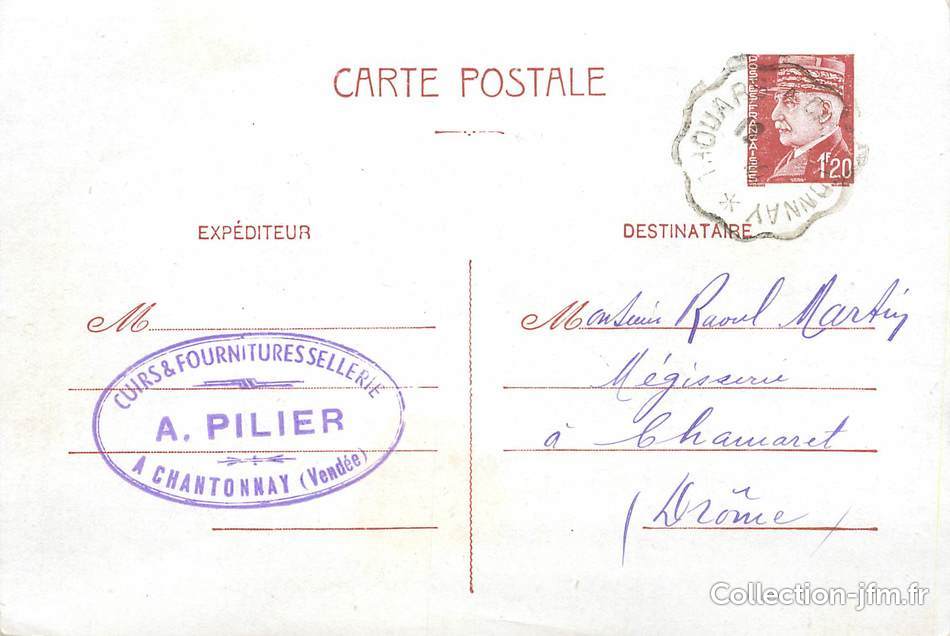 CARTE POSTALE
POSTES FRANÇAISES
1F20
THOUARS
NNAY *
EXPÉDITEUR
M
CUIRS & FOURNITURES SELLERIE
A. PILIER
A CHANTONNAY (Vendée)
DESTINATAIRE
Monsieur Raoul Martin
Mégisserie
à Chamaret
(Drôme)
Collection-jfm.fr